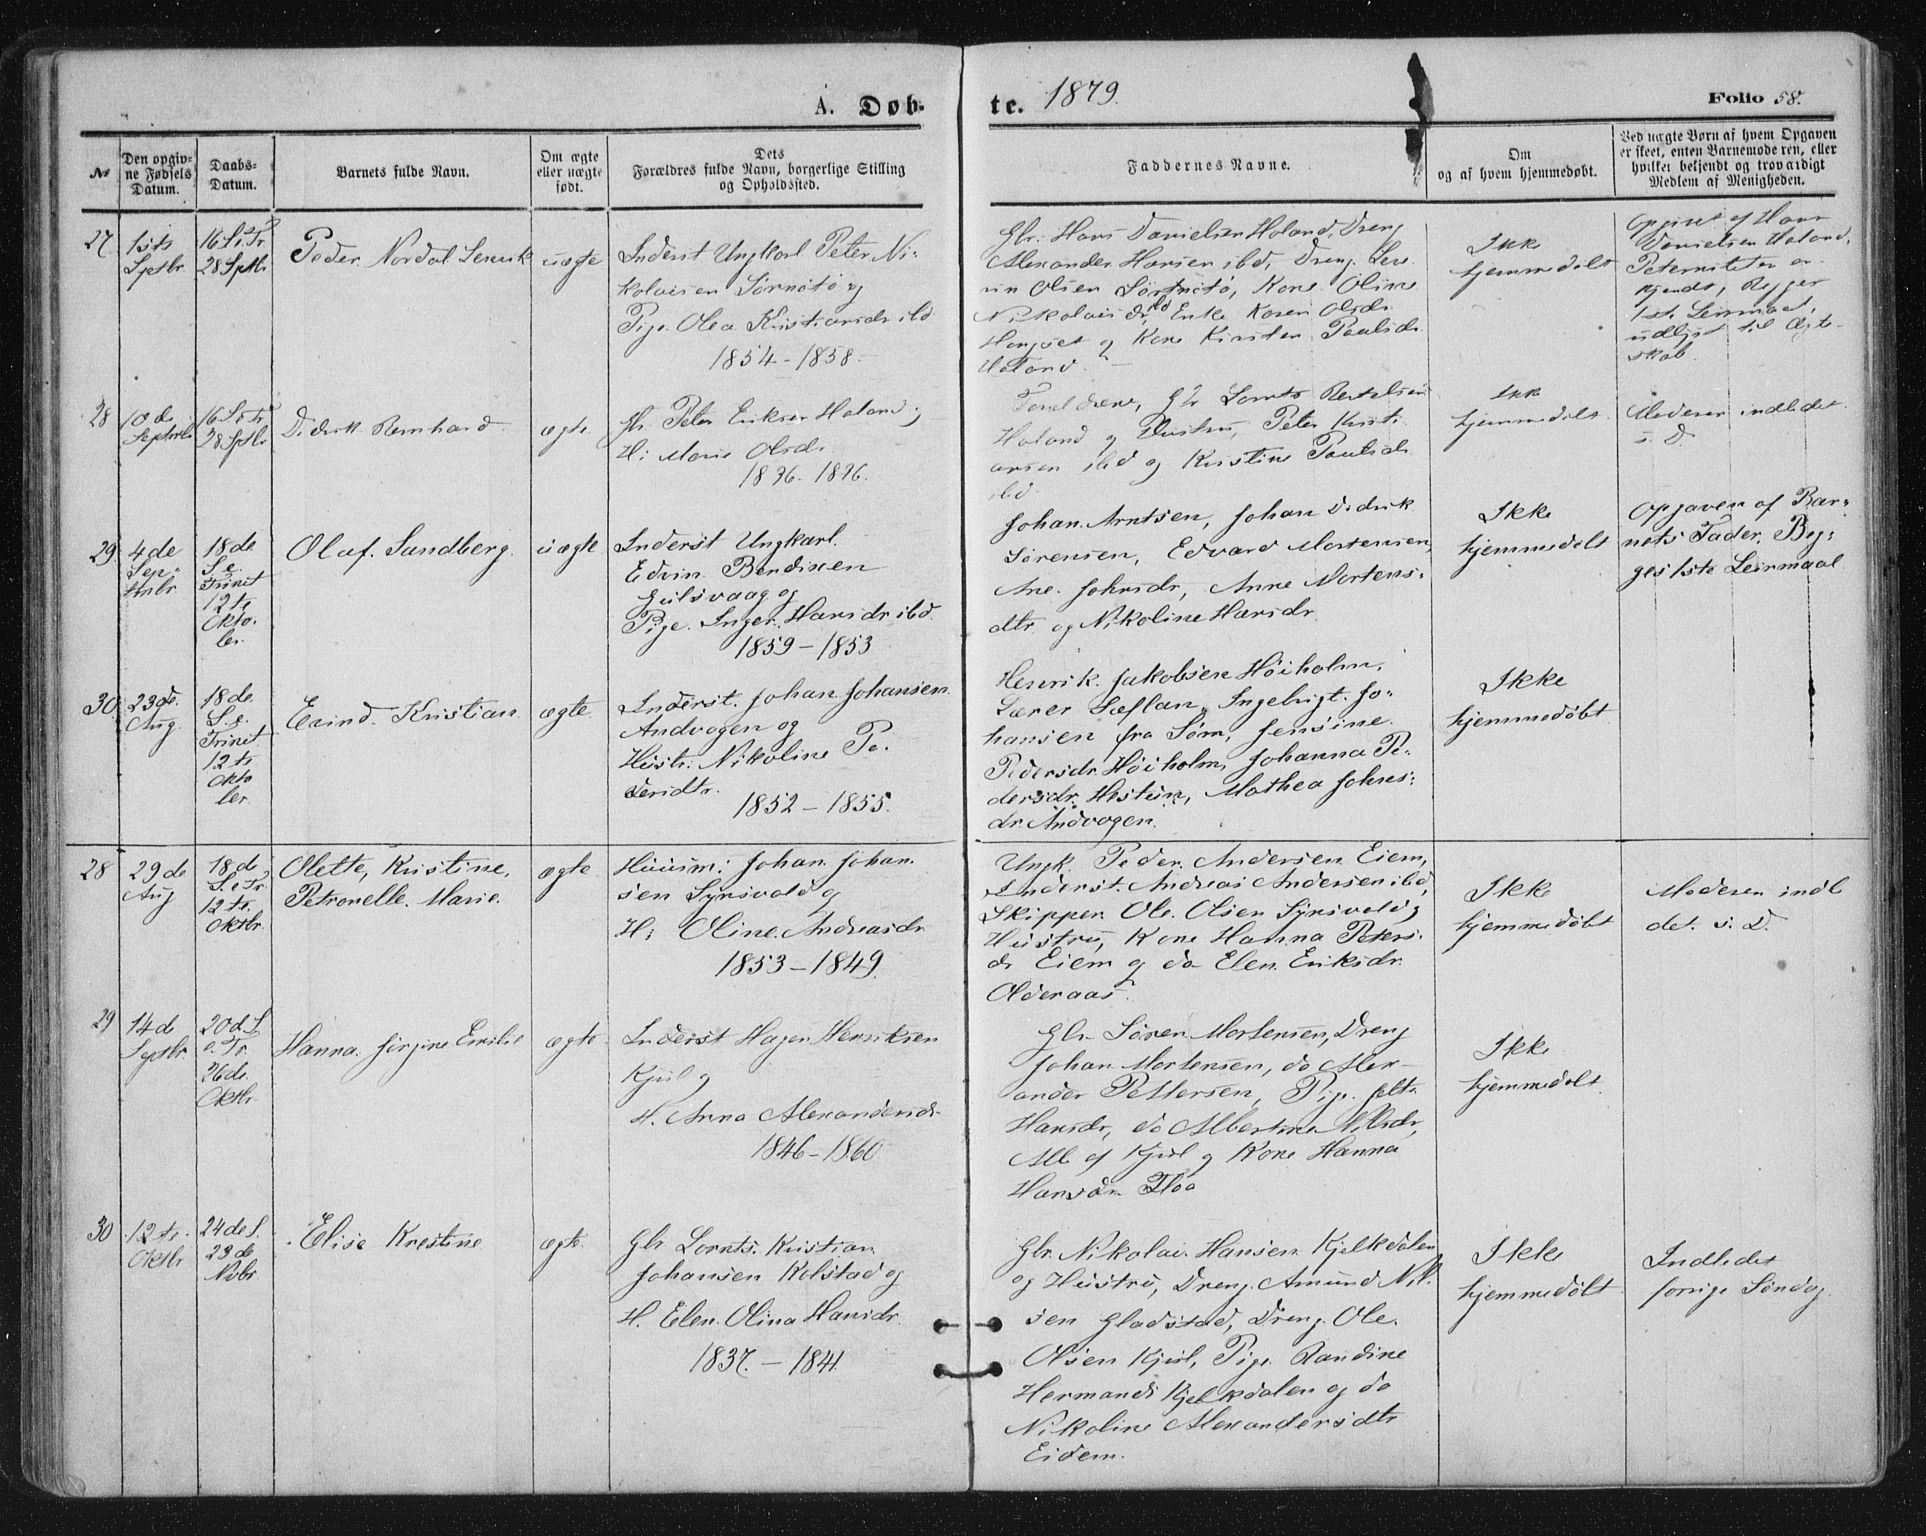 A. Døb-
te. 1879.
Folio 58.
No
Den opgiv-
ne Fødsels
Datum.
Daabs-
Datum.
Barnets fulde Navn.
Om ægte
eller uægte
født.
Dets
Forældres fulde Navn, borgerlige Stilling
og Opholdssted.
Faddernes Navne.
Om
og af hvem hjemmedøbt.
Ved uægte Børn af hvem Opgaven
er skeet, enten Barnemoderen, eller
hvilket bekjendt og troværdigt
Medlem af Menigheden.
27
1ste
Septbr
16 S. e. Tr
28 Septbr
Peder Nordal
uægte
Inderst Ungkarl Peter Ni-
kolaisen Sørnøtø og
Pige Olea Kristiansdr ibd
1854 - 1858.
Gbr: Hans Danielsen Holand, Dreng
Alexander Hansen ibd, Dreng
Olsen Sørnøtø, Kone Oline
Nikolaisdr ibd, Enke Karen Olsdr
og Kone Kirsten Paulsdr
Holand.
Ikke
hjemmedøbt
Opgivet af Hans
Danielsen Holand,
Peterniteten er-
kjendt, Begges
1ste Leiermaal,
udlyst til Ægte-
skab.
28
10de
Septmbr
16 S. e. Tr
28 Septbr
Didrik Bernhard
ægte.
Gbr. Peter Eriksen Holand og
H: Marie Olsdr
1826. 1826.
Forældrene, Gbr Lornts Bertelsen
Holand og Hustru, Peter Kristi-
ansen ibd og Kristine Paulsdr
ibd.
Ikke
hjemmedøbt.
Moderen indledet
s. D.
29.
4de
Sep-
tmbr
18de
S. e.
Trinit
12te
Okto-
ber.
Olaf. Sandberg.
uægte
Inderst Ungkarl.
Edvin Bendixen
Gulsvaag og
Pige. Inger. Hansdr. ibd.
1859 - 1853
Johan. Arntsen, Johan Didrik
Sørensen, Edvard Mortensen,
Ane. Johnsdr, Anne Mortens-
dtr og Nikoline Hansdr.
Ikke
hjemmedøbt
Opgaven af Bar-
nets Fader, Beg-
ges 1ste Leirmaal
30
23de.
Aug.
18de.
S. e.
Trinit.
12te
Okto
ber.
Evind. Kristian.
ægte.
Inderst. Johan Johansen.
Andvagen og
Hustr. Nikoline Pe-
dersdtr.
1852 - 1855.
Henrik. Jakobsen Høiholm,
Lærer Sæflan, Ingebrigt. Jo-
hansen fra Søm, Jensine.
Pedersdr Høiholm, Johanna Pe-
dersdr. Hestun, Mathea Johns-
dr. Andvagen.
Ikke
hjemmedøbt
28
29de
Aug
18de
S. e. Tr.
12te.
Oktbr.
Olette, Kristine,
Petronelle. Marie.
ægte
Huusm: Johan. Johan.
sen Synsvold og
H: Oline. Andreasdr.
1853 - 1849.
Ungk. Peder. Andersen Eiem,
Inderst. Andreas Andersen ibd,
Skipper. Ole. Olsen Synsvold og
Hustru, Kone Hanna Peters.
dr Eiem og do Elen. Eriksdr.
Olderaas.
Ikke
hjemmedøbt
Moderen indle
det. s. D.
29
14de
Septbr
20d S.
e. Tr.
26de
Oktbr.
Hanna. Jørgine Emilie
ægte.
Inderst Hagen Henriksen
Kjul og
H. Anna Alexandersdr
1846 - 1860
Gbr. Søren Mortensen, Dreng
Johan Mortensen, do Alex-
ander Pettersen, Pige.
Hansdr, do Albertine Nilsdr,
Alle af Kjul og Kone Hanna
Hansdr. Floa
Ikke
hjemmedøbt.
30
12te.
Oktbr
24de S.
23de
Nvbr
Elise Krestine
ægte.
Gbr Lornts. Kristian
Johansen Kolstad og
H. Elen. Olina Hansdr.
1837. - 1841.
Gbr. Nikolai. Hansen Kjelkdalen
og Hustru, Dreng. Amund Nil-
sen Gladstad, Dreng. Ole.
Olsen Kjul, Pige. Randine
Hermands Kjelkdalen og do
Nikoline Alexandersdtr
Eidem.
Ikke
hjemmedøbt
Indledet
forrige Søndag.